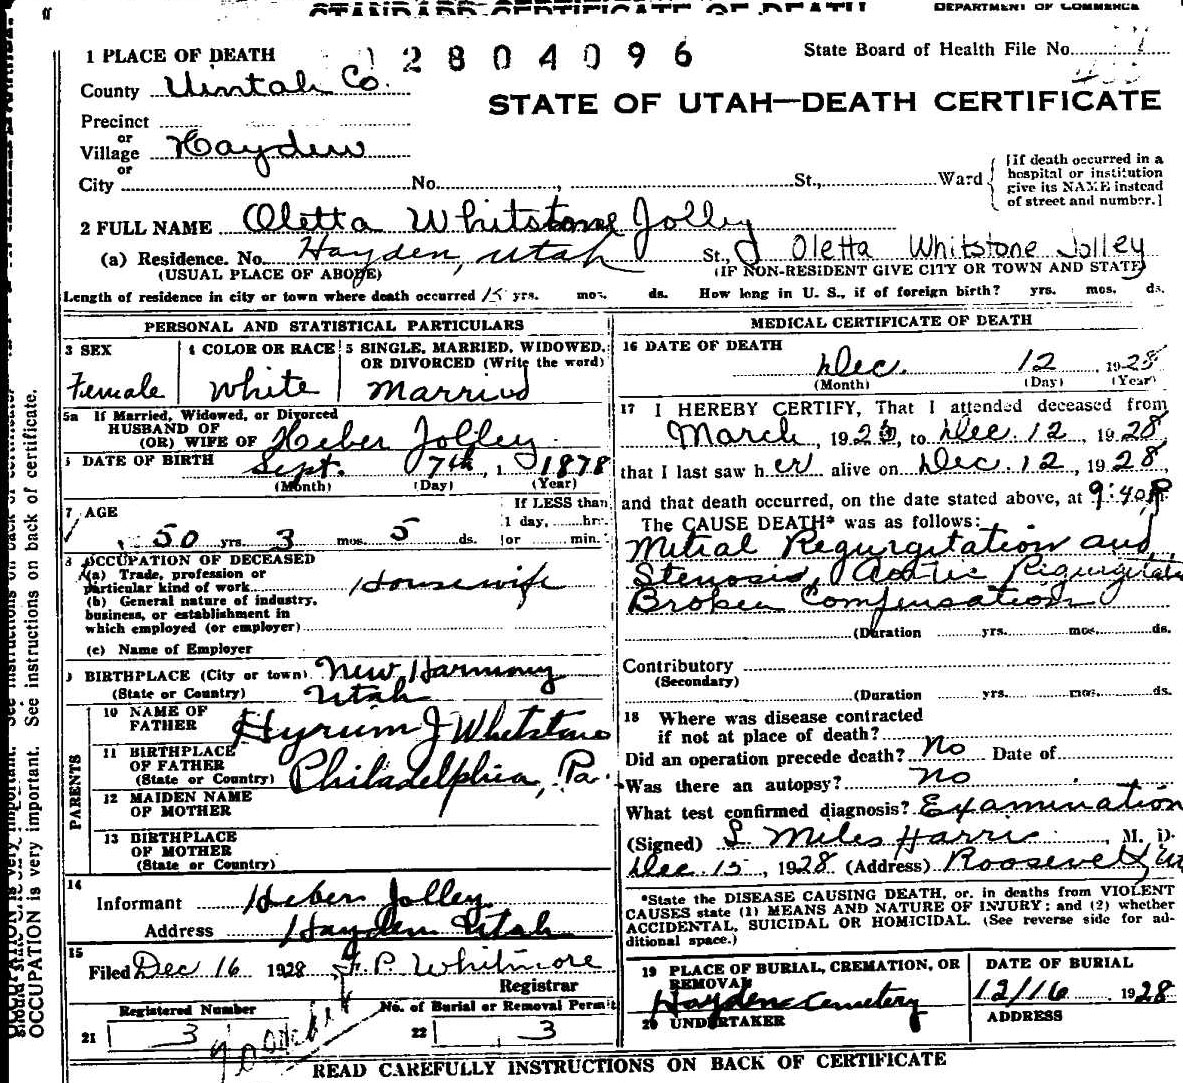 STANDARD CERTIFICATE OF DEATH
DEPARTMENT OF COMMERCE
1 PLACE OF DEATH
2804096
State Board of Health File No.
County Uintah Co.
STATE OF UTAH—DEATH CERTIFICATE
Precinct
or
Village Hayden
or
City No. , St., Ward
[If death occurred in a
hospital or institution
give its NAME instead
of street and number.]
2 FULL NAME Oletta Whitstone Jolley
(a) Residence. No. Hayden, Utah St., Oletta Whitstone Jolley
(USUAL PLACE OF ABODE) (IF NON-RESIDENT GIVE CITY OR TOWN AND STATE)
Length of residence in city or town where death occurred 15 yrs. mos. ds. How long in U. S., if of foreign birth? yrs. mos. ds.
PERSONAL AND STATISTICAL PARTICULARS
3 SEX
Female
4 COLOR OR RACE
White
5 SINGLE, MARRIED, WIDOWED,
OR DIVORCED (Write the word)
Married
5a If Married, Widowed, or Divorced
HUSBAND OF
(OR) WIFE OF Heber Jolley
DATE OF BIRTH Sept. 7th, 1 1878
(Month) (Day) (Year)
7 AGE
50 yrs. 3 mos. 5 ds.
If LESS than
1 day, hr.
or min.
OCCUPATION OF DECEASED
(a) Trade, profession or
particular kind of work Housewife
(b) General nature of industry,
business, or establishment in
which employed (or employer)
(c) Name of Employer
BIRTHPLACE (City or town) New Harmony
(State or Country) Utah
PARENTS
10 NAME OF
FATHER Hyrum J Whitstone
11 BIRTHPLACE
OF FATHER
(State or Country) Philadelphia, Pa.
12 MAIDEN NAME
OF MOTHER
13 BIRTHPLACE
OF MOTHER
(State or Country)
14
Informant Heber Jolley
Address Hayden Utah
15
Filed Dec 16 1928 F. P. Whitmore
Registrar
Registered Number
21 3
No. of Burial or Removal Permit
22 3
MEDICAL CERTIFICATE OF DEATH
16 DATE OF DEATH
Dec. 12, 1928
(Month) (Day) (Year)
17 I HEREBY CERTIFY, That I attended deceased from
March, 1926, to Dec. 12, 1928,
that I last saw her alive on Dec. 12, 1928,
and that death occurred, on the date stated above, at 9:40 P
The CAUSE DEATH* was as follows:
Mitral Regurgitation and
Stenosis, Aortic Regurgitation
Broken Compensation
(Duration yrs. mos. ds.
Contributory
(Secondary)
(Duration yrs. mos. ds.
18 Where was disease contracted
if not at place of death?
Did an operation precede death? No Date of
Was there an autopsy? No
What test confirmed diagnosis? Examination
(Signed) L. Miles Harris, M. D.
Dec. 15, 1928 (Address) Roosevelt, Ut
*State the DISEASE CAUSING DEATH, or, in deaths from VIOLENT
CAUSES state (1) MEANS AND NATURE OF INJURY; and (2) whether
ACCIDENTAL, SUICIDAL OR HOMICIDAL. (See reverse side for ad-
ditional space.)
19 PLACE OF BURIAL, CREMATION, OR
REMOVAL
Hayden Cemetery
DATE OF BURIAL
12/16 1928
20 UNDERTAKER
ADDRESS
READ CAREFULLY INSTRUCTIONS ON BACK OF CERTIFICATE
OCCUPATION is very important. See instructions on back of certificate.